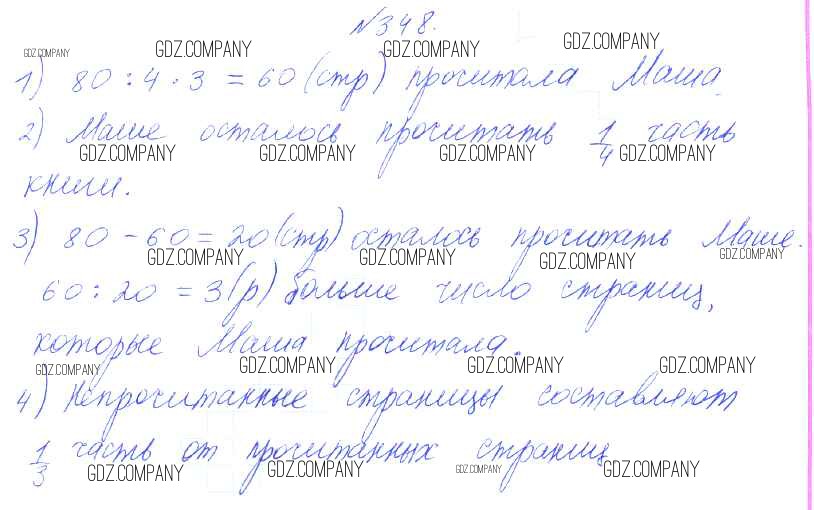 №348.
GDZ.COMPANY GDZ.COMPANY GDZ.COMPANY GDZ.COMPANY
1) 80 : 4 · 3 = 60 (стр) прочитала Маша.
2) Маше осталось прочитать 1/4 часть
GDZ.COMPANY GDZ.COMPANY GDZ.COMPANY GDZ.COMPANY
книги.
3) 80 - 60 = 20 (стр) осталось прочитать Маше.
GDZ.COMPANY GDZ.COMPANY GDZ.COMPANY GDZ.COMPANY
60 : 20 = 3 (р) больше число страниц,
которые Маша прочитала.
GDZ.COMPANY GDZ.COMPANY GDZ.COMPANY GDZ.COMPANY
4) Непрочитанные страницы составляют
1/3 часть от прочитанных страниц
GDZ.COMPANY GDZ.COMPANY GDZ.COMPANY GDZ.COMPANY